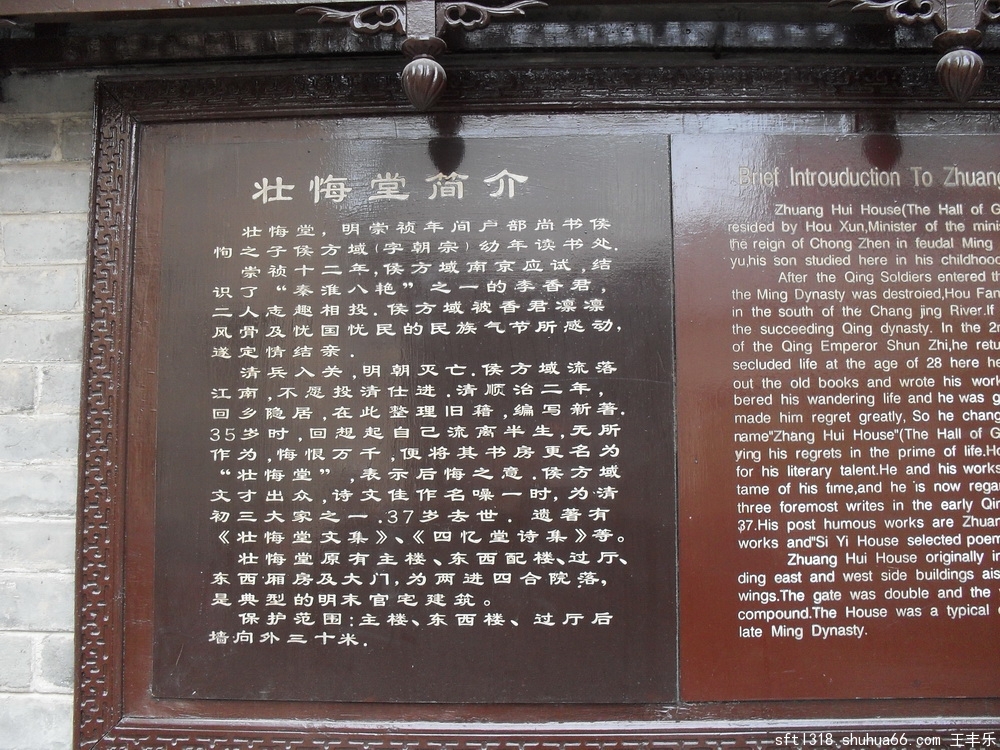 壮悔堂简介
壮悔堂，明崇祯年间户部尚书侯
恂之子侯方域(字朝宗)幼年读书处.
崇祯十二年,侯方域南京应试,结
识了“秦淮八艳”之一的李香君,
二人志趣相投.侯方域被香君凛凛
风骨及忧国忧民的民族气节所感动,
遂定情结亲.
清兵入关,明朝灭亡.侯方域流落
江南,不愿投清仕进.清顺治二年,
回乡隐居,在此整理旧籍,编写新著.
35岁时,回想起自己流离半生,无所
作为,悔恨万千,便将其书房更名为
“壮悔堂”,表示后悔之意.侯方域
文才出众,诗文佳作名噪一时,为清
初三大家之一.37岁去世.遗著有
《壮悔堂文集》、《四忆堂诗集》等。
壮悔堂原有主楼、东西配楼、过厅、
东西厢房及大门,为两进四合院落,
是典型的明末官宅建筑。
保护范围:主楼、东西楼、过厅后
墙向外三十米.
Brief Introuduction To Zhuang
Zhuang Hui House(The Hall of G
resided by Hou Xun,Minister of the mini
the reign of Chong Zhen in feudal Ming
yu,his son studied here in his childhood
After the Qing Soldiers entered th
the Ming Dynasty was destroied,Hou Fan
in the south of the Chang jing River.If
the succeeding Qing dynasty. In the 2n
of the Qing Emperor Shun Zhi,he retu
secluded life at the age of 28 here he
out the old books and wrote his work
bered his wandering life and he was g
made him regret greatly, So he chang
name"Zhang Hui House"(The Hall of G
ying his regrets in the prime of life.Ho
for his literary talent.He and his works
tame of his time,and he is now regar
three foremost writes in the early Qin
37.His post humous works are Zhuan
works and"Si Yi House selected poem
Zhuang Hui House originally in
ding east and west side buildings ais
wings.The gate was double and the
compound.The House was a typical
late Ming Dynasty.
sftl318.shuhua66.com 王丰乐